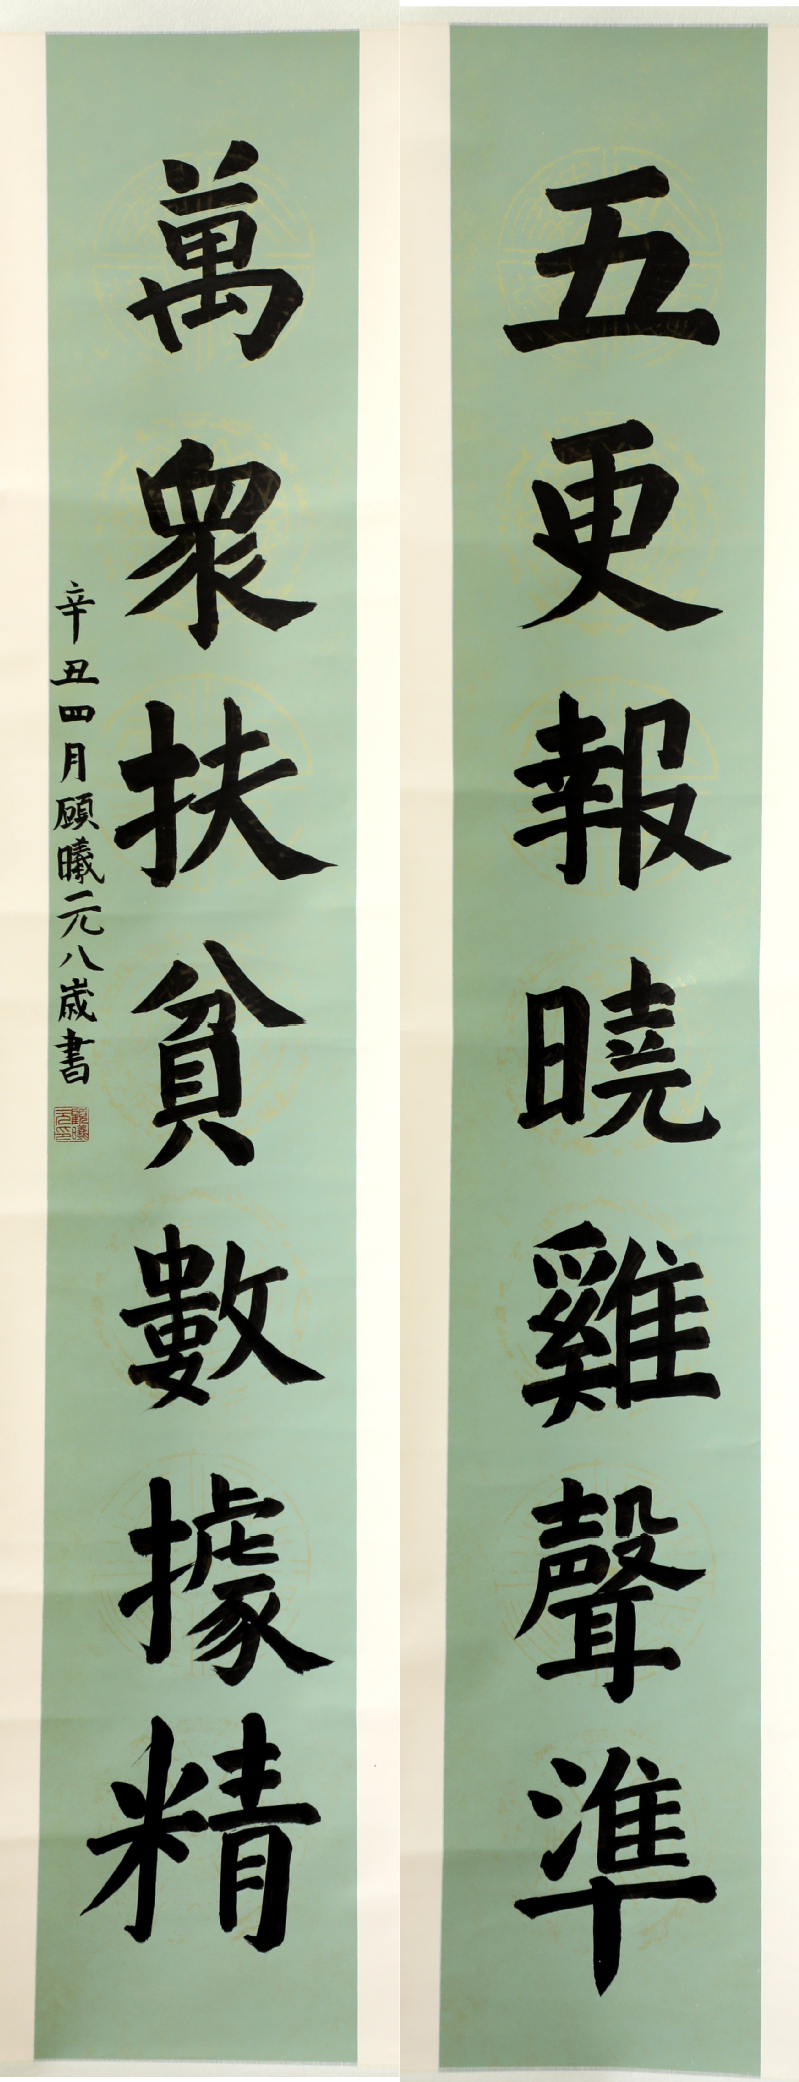 五更報曉雞聲準
萬衆扶貧數據精
辛丑四月顧曦元八歲書
顧曦元印